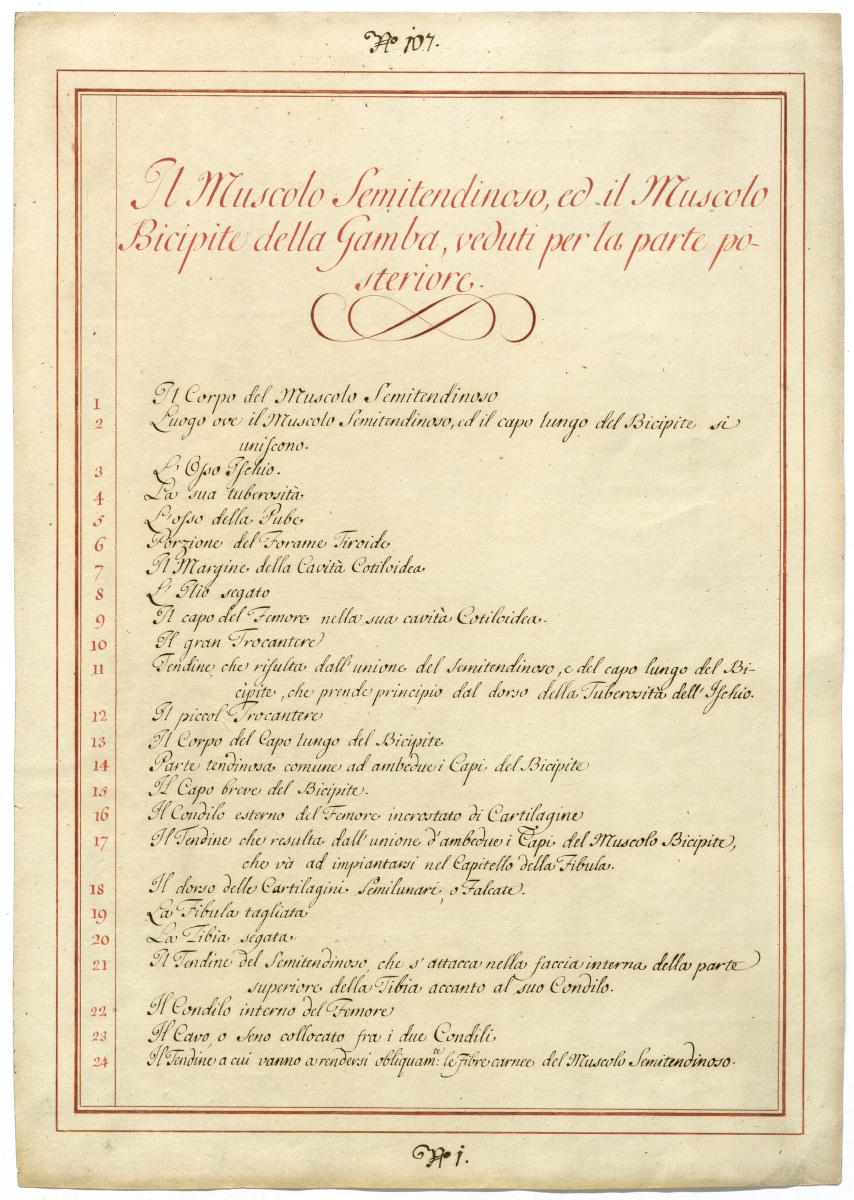 No 107.
Il Muscolo Semitendinoso, ed il Muscolo
Bicipite della Gamba, veduti per la parte po-
steriore.
1 Il Corpo del Muscolo Semitendinoso
2 Luogo ove il Muscolo Semitendinoso, ed il capo lungo del Bicipite si
uniſcono.
3 L'Oſso Iſchio.
4 La sua tuberosità
5 L'oſso della Pube
6 Porzione del Forame Tiroide
7 Il Margine della Cavità Cotiloidea
8 L'Ilio segato
9 Il capo del Femore nella sua cavità Cotiloidea.
10 Il gran Trocantere
11 Tendine che riſulta dall'unione del Semitendinoso, e del capo lungo del Bi-
cipite, che prende principio dal dorso della Tuberosità dell'Iſchio.
12 Il piccol Trocantere
13 Il Corpo del Capo lungo del Bicipite
14 Parte tendinosa comune ad ambedue i Capi del Bicipite
15 Il Capo breve del Bicipite.
16 Il Condilo esterno del Femore incrostato di Cartilagine
17 Il Tendine che resulta dall'unione d'ambedue i Capi del Muscolo Bicipite,
che và ad impiantarsi nel Capitello della Fibula.
18 Il dorso delle Cartilagini Semilunari, o Falcate.
19 La Fibula tagliata
20 La Tibia segata
21 Il Tendine del Semitendinoso, che s'attacca nella faccia interna della parte
superiore della Tibia accanto al suo Condilo.
22 Il Condilo interno del Femore
23 Il Cavo, o Seno collocato fra i due Condili
24 Il Tendine a cui vanno a rendersi obliquam.te le Fibre carnee del Muscolo Semitendinoso.
No 1.